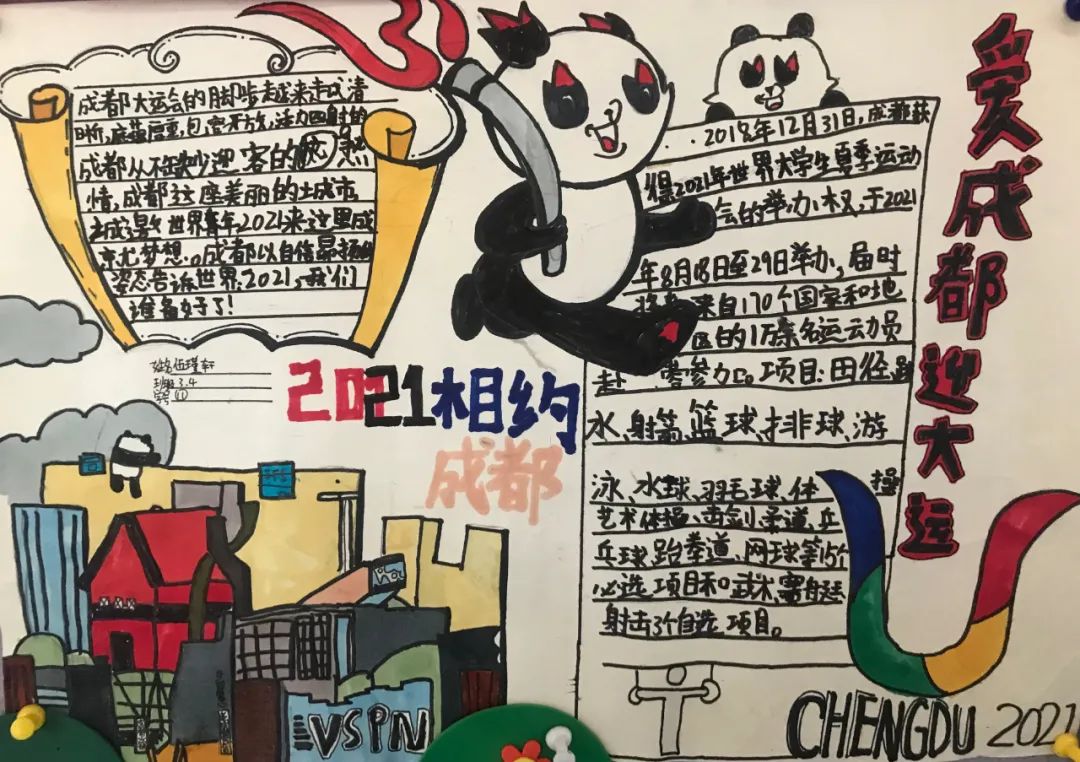 成都大运会的脚步越来越
晰,底蕴厚重,包容开放,活力四射的
成都从不缺少迎客的 热
情,成都这座美丽的 城市
世界青年2021来这里成
梦想。成都以自信昂扬的
姿态告诉世界:2021,我们
准备好了!
姓名伍瑾轩
班级3.4
学号①
2021相约
成都
2018年12月31日,成都获
得2021年世界大学生夏季运动
会的举办权,于2021
年8月18日至29日举办,届时
将有 来自170个国家和地
区的1万余名运动员
赴 参加。项目:田径、跳
水、射箭、篮球、排球、游
泳、水球、羽毛球、体 操
艺术体操、击剑、柔道、乒
乓球、跆拳道、网球等15个
必选项目和武术、赛艇
射击3个自选项目。
爱成都迎大运
VSPN
CHENGDU 2021